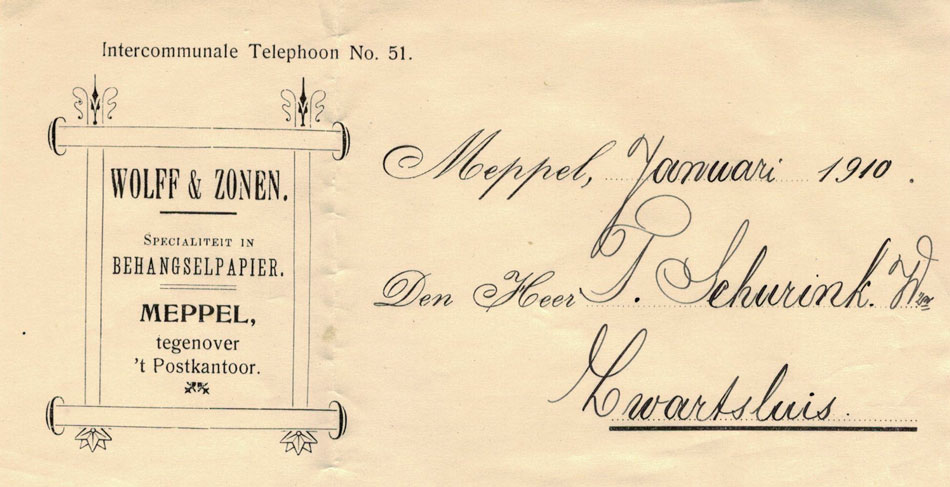 Intercommunale Telephoon No. 51.
WOLFF & ZONEN.
SPECIALITEIT IN
BEHANGSELPAPIER.
MEPPEL,
tegenover
't Postkantoor.
Meppel, Januari 1910.
Den Heer T. Schurink. Wzn
Zwartsluis.